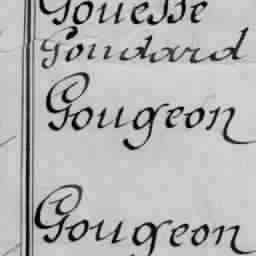 Gouesse
Goudard
Gougeon
Gougeon